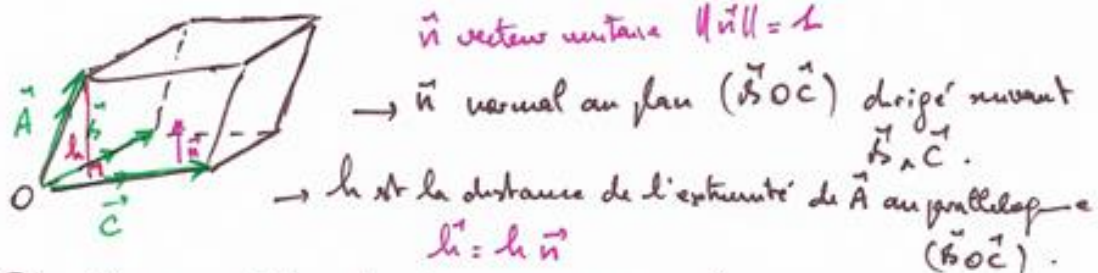 n⃗ vecteur unitaire ||n⃗|| = 1
→ n⃗ normal au plan (B⃗OC⃗) dirigé suivant
B⃗ ∧ C⃗.
→ h est la distance de l'extrémité de A⃗ au parallélogramme
(B⃗OC⃗).
h⃗ = h n⃗
A⃗
B⃗
h
n⃗
O
C⃗